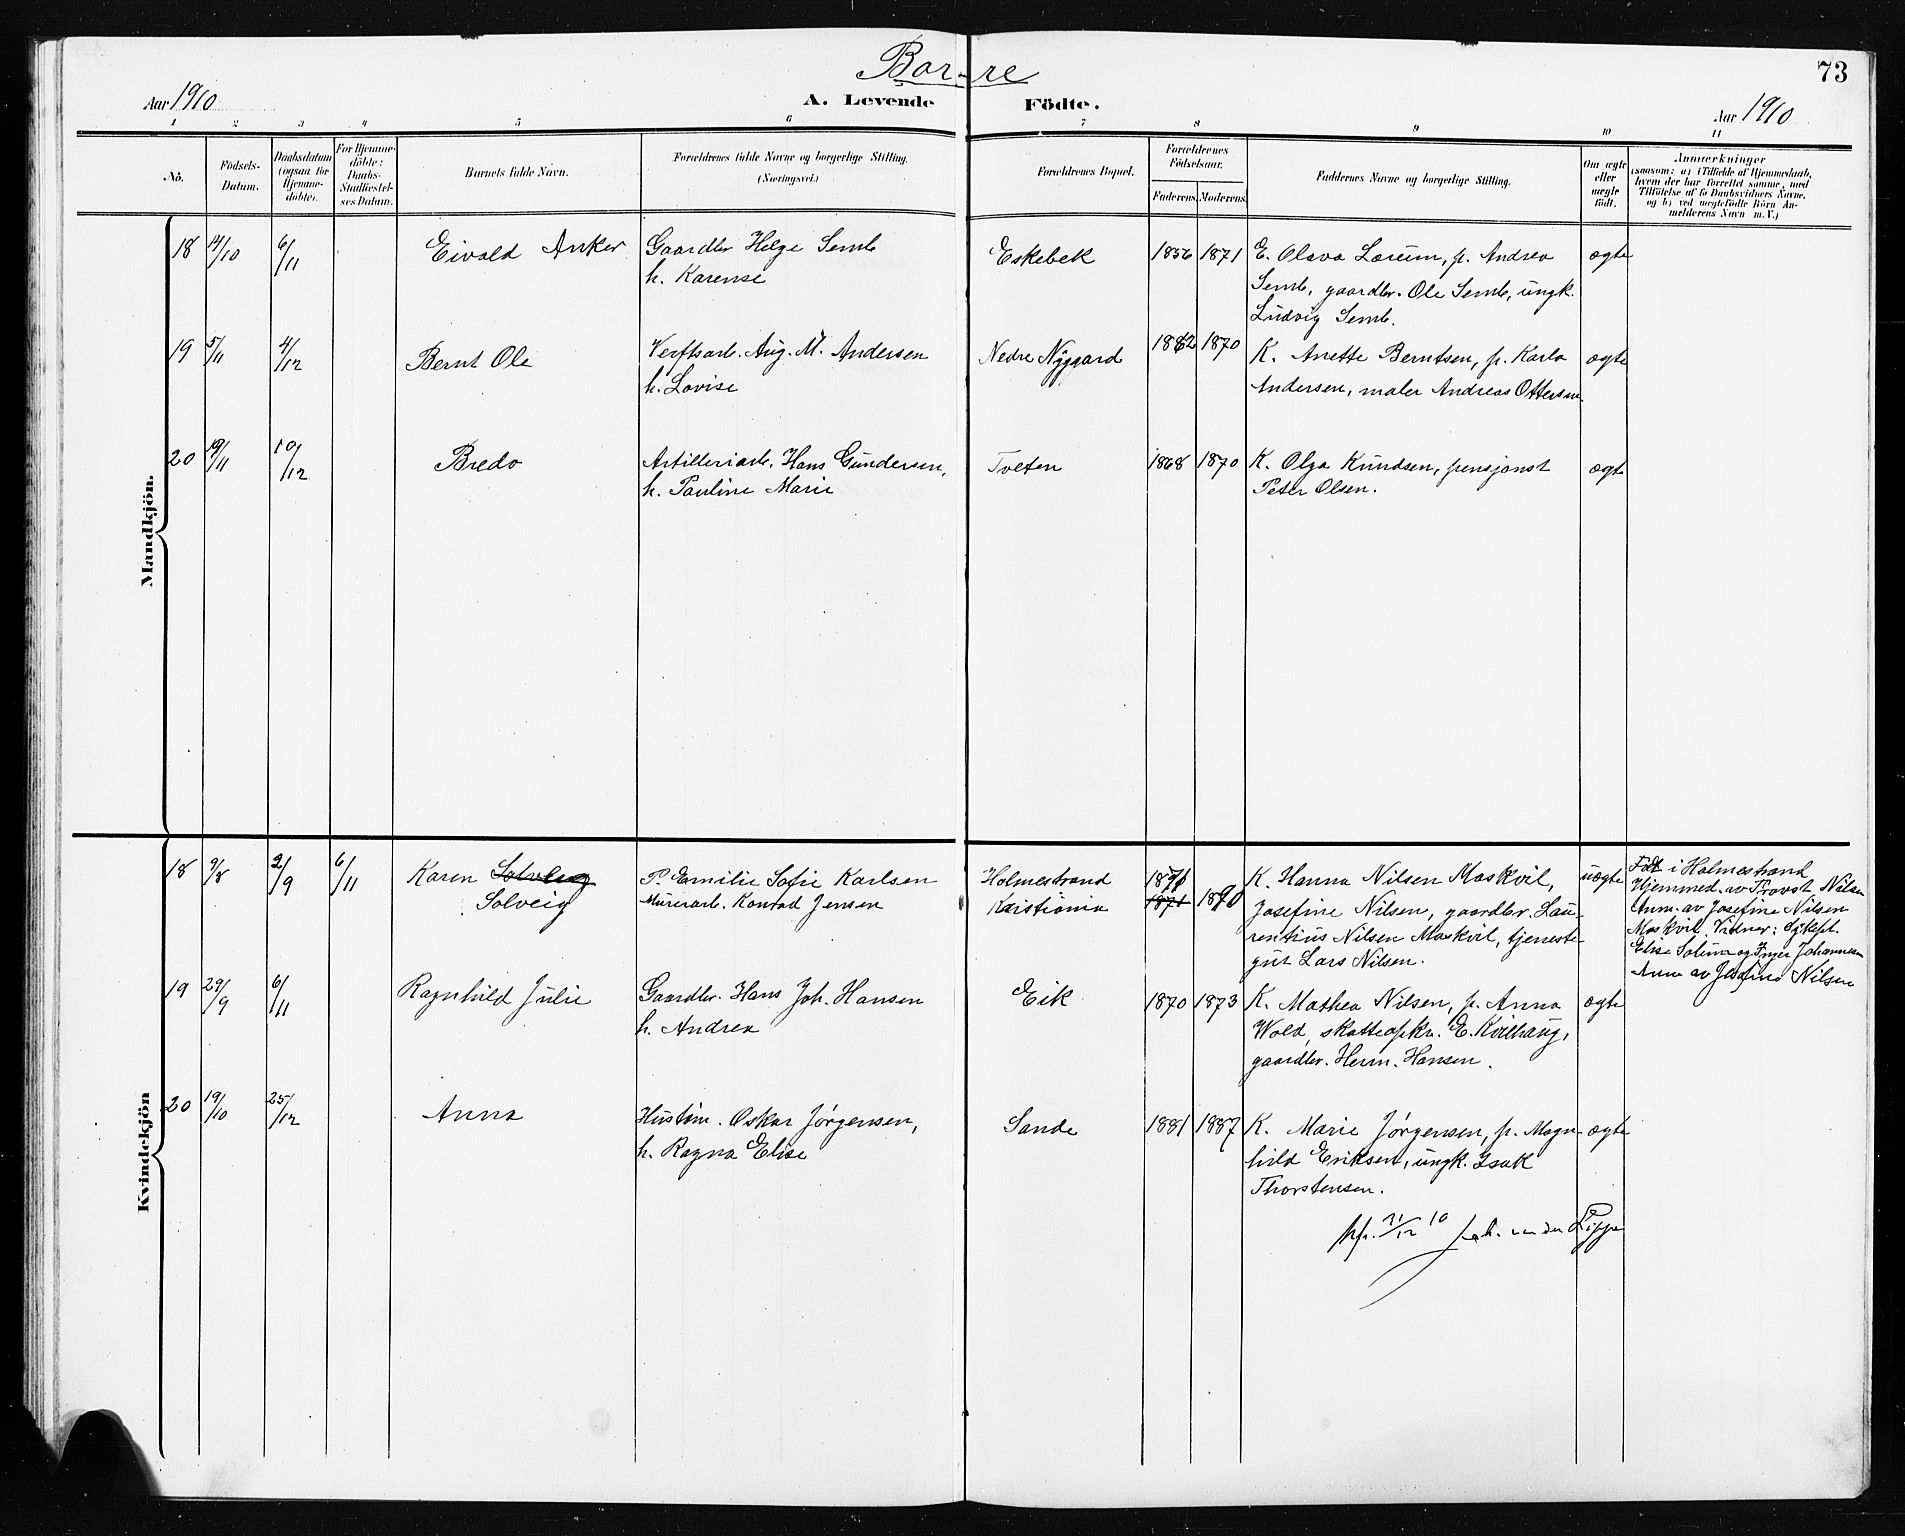 Borre
73
Aar 1910
A. Levende Födte.
Aar 1910
1 2 3 4 5 6 7 8 9 10 11
No.
Födsels-Datum.
Daabsdatum (ogsaa for Hjemme-døbte).
For Hjemme-döbte: Daabs-Stadfæstel-ses Datum.
Barnets fulde Navn.
Forældrenes fulde Navne og borgerlige Stilling. (Næringsvei.)
Forældrenes Bopæl.
Forældrenes Födselsaar.
Faderens Moderens
Faddernes Navne og borgerlige Stilling.
Om ægte eller uægte födt.
Anmærkninger
(saasom: a) i Tilfælde af Hjemmedaab,
hvem der har forrettet samme, med
Tilföielse af to Daabsvidners Navne,
og b) ved uegtefödte Börn An-
melderens Navn m. V.)
Mandkjön.
18 14/10 6/11 Eivald Anker Gaardbr Helge Semb Eskebek 1856 1871 E. Olava Lærum, p. Andrea ægte
h. Karense Semb, gaardbr. Ole Semb, ungk.
Ludvig Semb.
19 5/11 4/12 Bernt Ole Verftsarb. Aug. M. Andersen Nedre Nygaard 1862 1870 K. Anette Berntsen, p. Karla ægte
h. Lovise Andersen, maler Andreas Ottersen
20 19/11 10/12 Bredo Artilleriarb. Hans Gundersen, Tveten 1868 1870 K. Olga Knudsen, pensjonst ægte
h. Pauline Marie Peter Olsen.
Kvindekjön
18 9/8 2/9 6/11 Karen Solveig P. Emilie Sofie Karlsen Holmestrand 1871 K. Hanna Nilsen Maskvil, uægte Født i Holmestrand
Solveig Murerarb. Konrad Jensen Kristiania 1871 Josefine Nilsen, gaardbr. Lau- Hjemmed. av Provst Nilsen
rentius Nilsen Maskvil, tjeneste- Anm. av Josefine Nilsen
gut Lars Nilsen. Maskvil. Vidner: Sykepl.
Elise Solum og Inger Johannesen
Anm av Josefine Nilsen
19 29/9 6/11 Ragnhild Julie Gaardbr. Hans Joh. Hansen Eik 1870 1873 K. Mathea Nilsen, p. Anna ægte
h. Andrea Wold, skatteopkr. E. Kvilhaug,
gaardbr. Herm. Hansen.
20 19/10 25/12 Anna Hustøm. Oskar Jørgensen, Sande 1881 1887 K. Marie Jørgensen, p. Magn- ægte
h. Ragna Elise hild Eriksen, ungk. Isak
Thorstensen.
31/12 10 Jak. van der Lippe